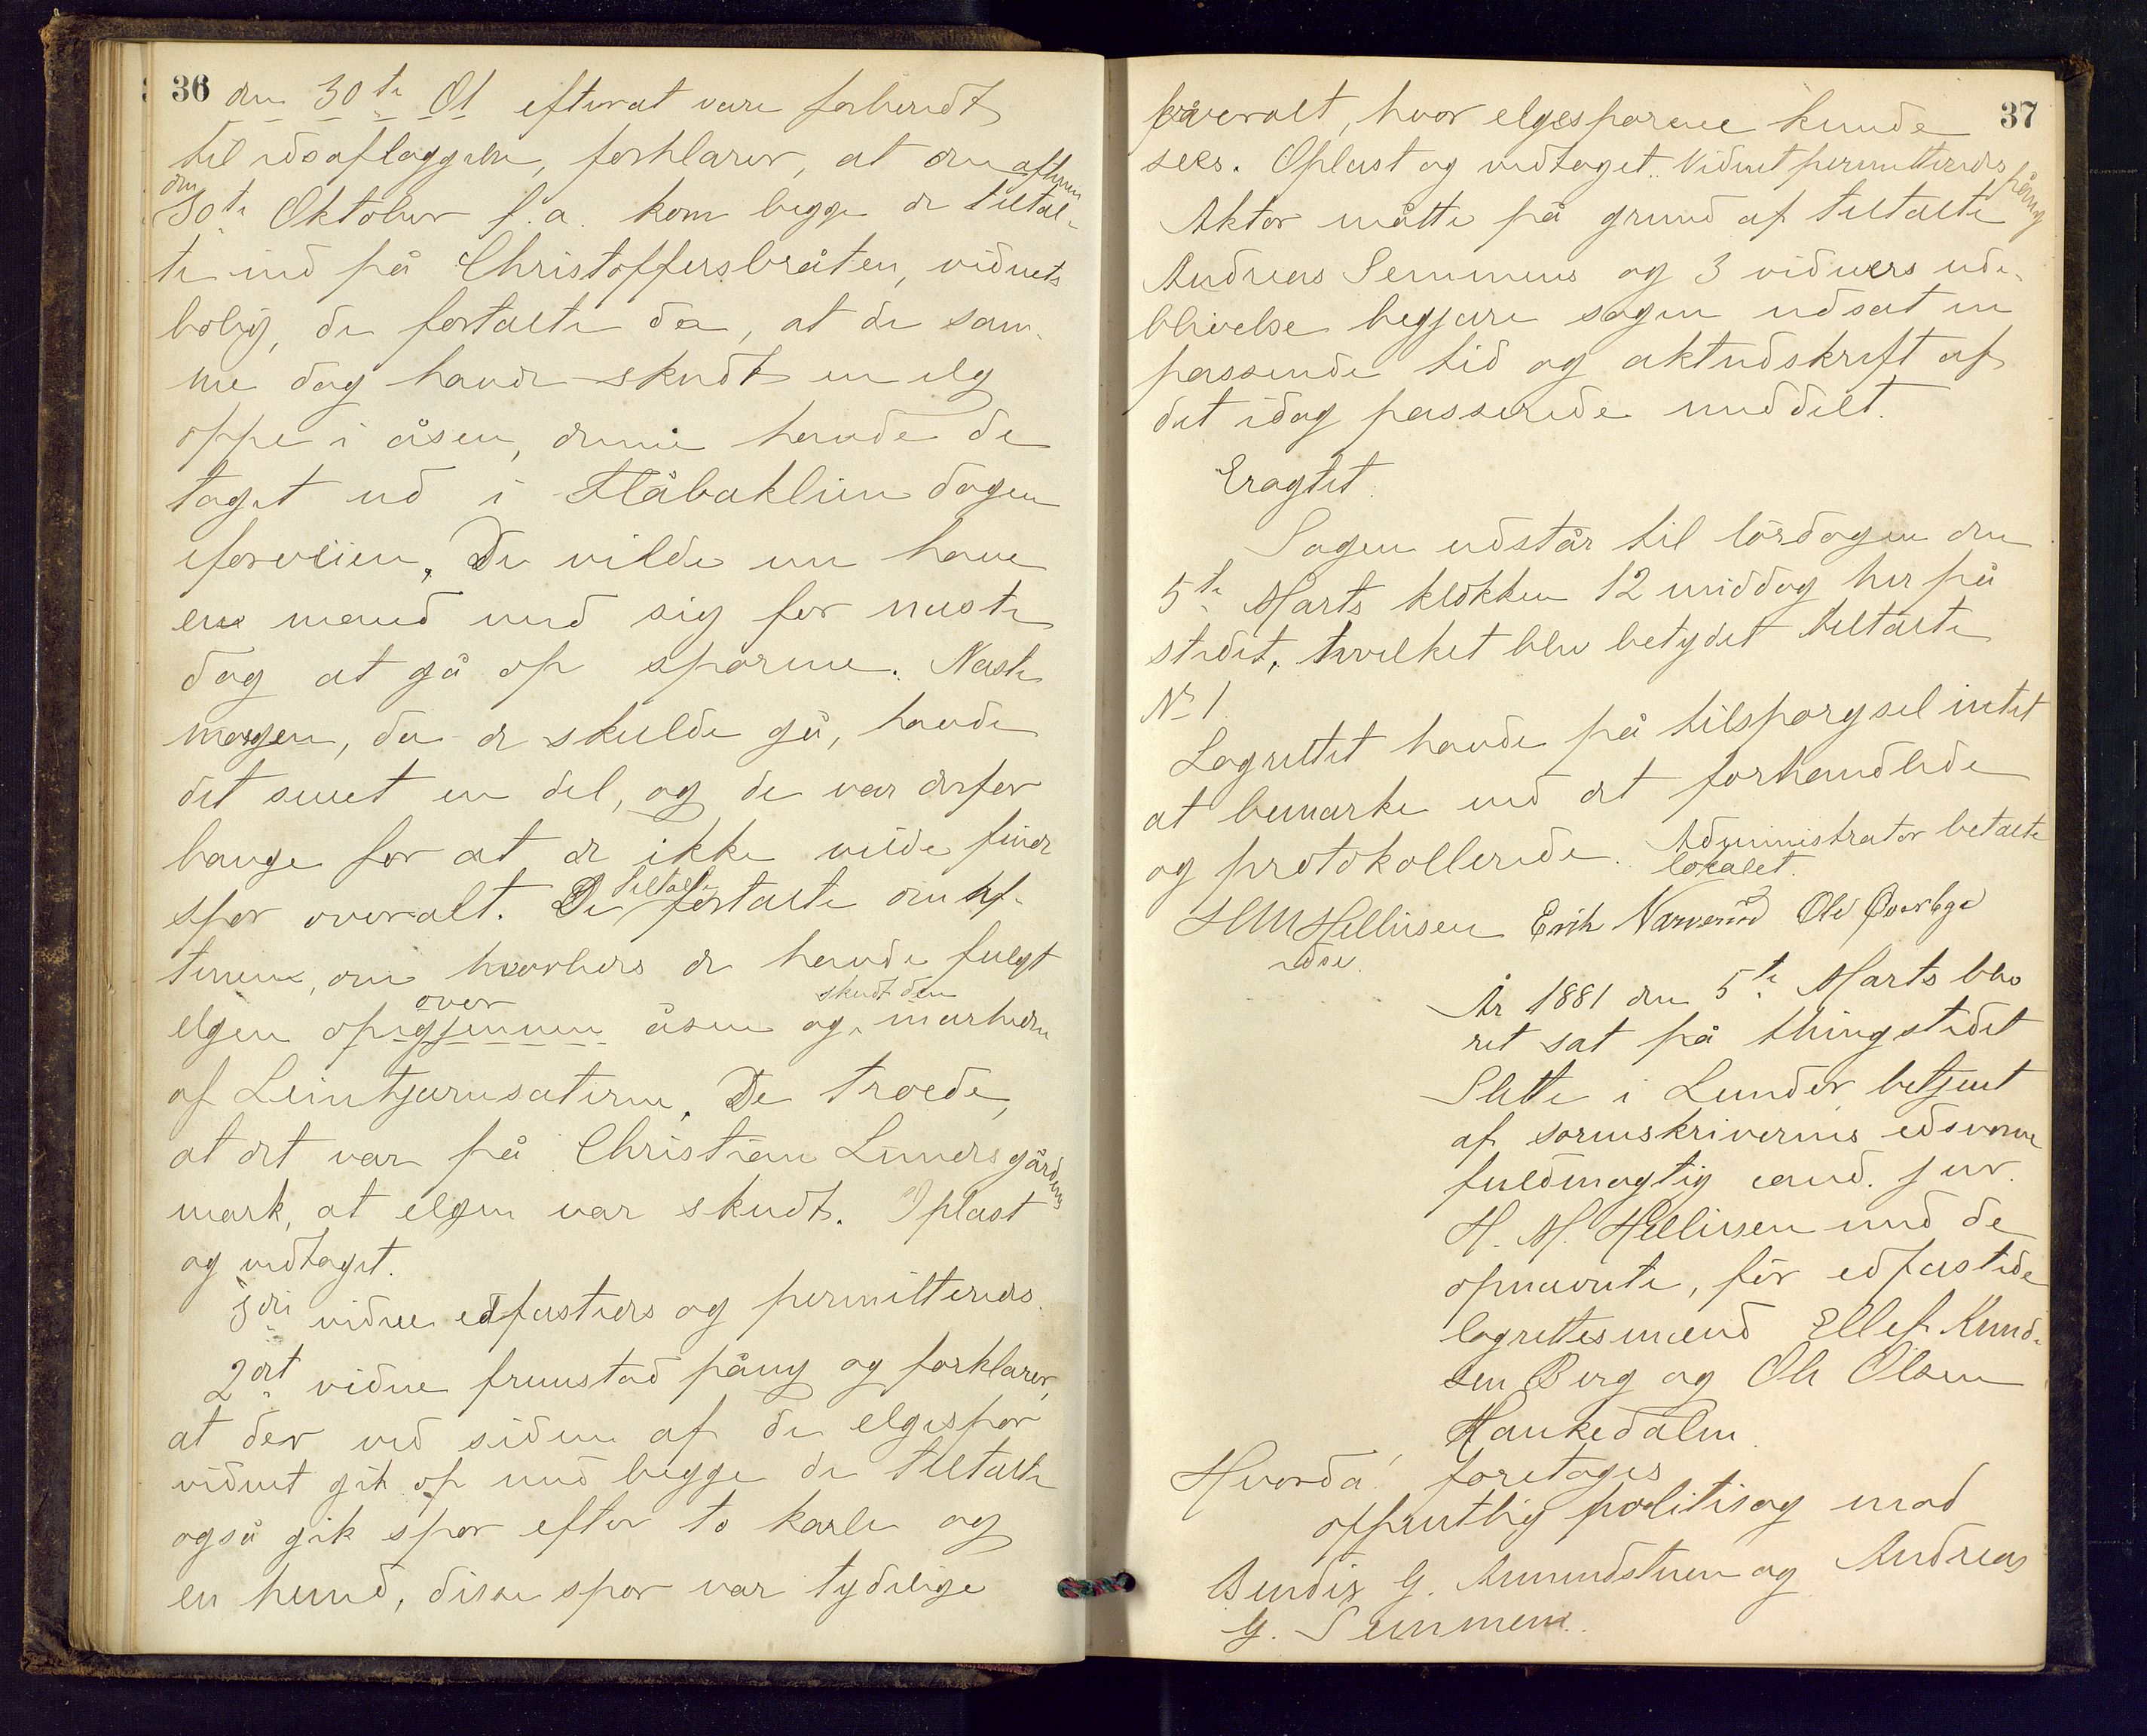 36
den 30te Ot efterat være forberedt
til edsaflæggelse, forklarer, at den aftenen
den
30te Oktober f. a. kom begge de tiltal-
te ind på Christoffersbråten, vidnets
bolig, de fortalte da, at de sam-
me dag havde skudt en elg
oppe i åsen, denne havde de
taget ud i Flåbaklien dagen
iforveien. De vilde nu have
en mand med sig for næste
dag at gå op sporene. Næste
morgen, da de skulde gå, havde
det sneet en del, og de var derfor
bange for at de ikke vilde finde
spor overalt. De tiltalte fortalte om af-
tenen, om hvorledes de havde fulgt
elgen op igjennem over åsen og skudt den i nærheden
af Leintjernsæterne. De troede,
at det var på Christian Lunders gårdens
mark, at elgen var skudt. Oplæst
og vedtaget.
3die vidne edfæstedes og permitteredes.
2det vidne fremstod påny og forklarer,
at der ved siden af de elgespor
vidnet gik op med begge de tiltalte
også gik spor efter to karle og
en hund, disse spor var tydelige
37
overalt, hvor elgesporene kunde
sees. Oplæst og vedtaget. Vidnet permitteredes påny
Aktor måtte på grund af tiltalte
Andreas Semmens og 3 vidners ude-
blivelse begjære sagen udsat en
passende tid og aktudskrift af
det idag passerede meddelt.
Eragtet:
Sagen udstår til lørdagen den
5te Marts klokken 12 middag her på
stedet, hvilket blev betydet tiltalte
No 1.
Lagrettet havde på tilspørgsel intet
at bemærke ved det forhandlede
og protokollerede. Administrator betalte
lokalet.
HMHelliesen Erik Narverud Ole Øverbye
edsv.
År 1881 den 5te Marts blev
ret sat på thingstedet
Slette i Lunder, betjent
af sorenskriverens edsvorne
fuldmægtig cand. jur.
H. M. Helliesen med de
opnævnte, før edfæstede
lagrettesmænd Ellef Knud-
sen Berg og Ole Olsen
Haukedalen
Hvorda! foretoges
offentlig politisag mod
Bendix G. Amundstuen og Andreas
G. Semmen.